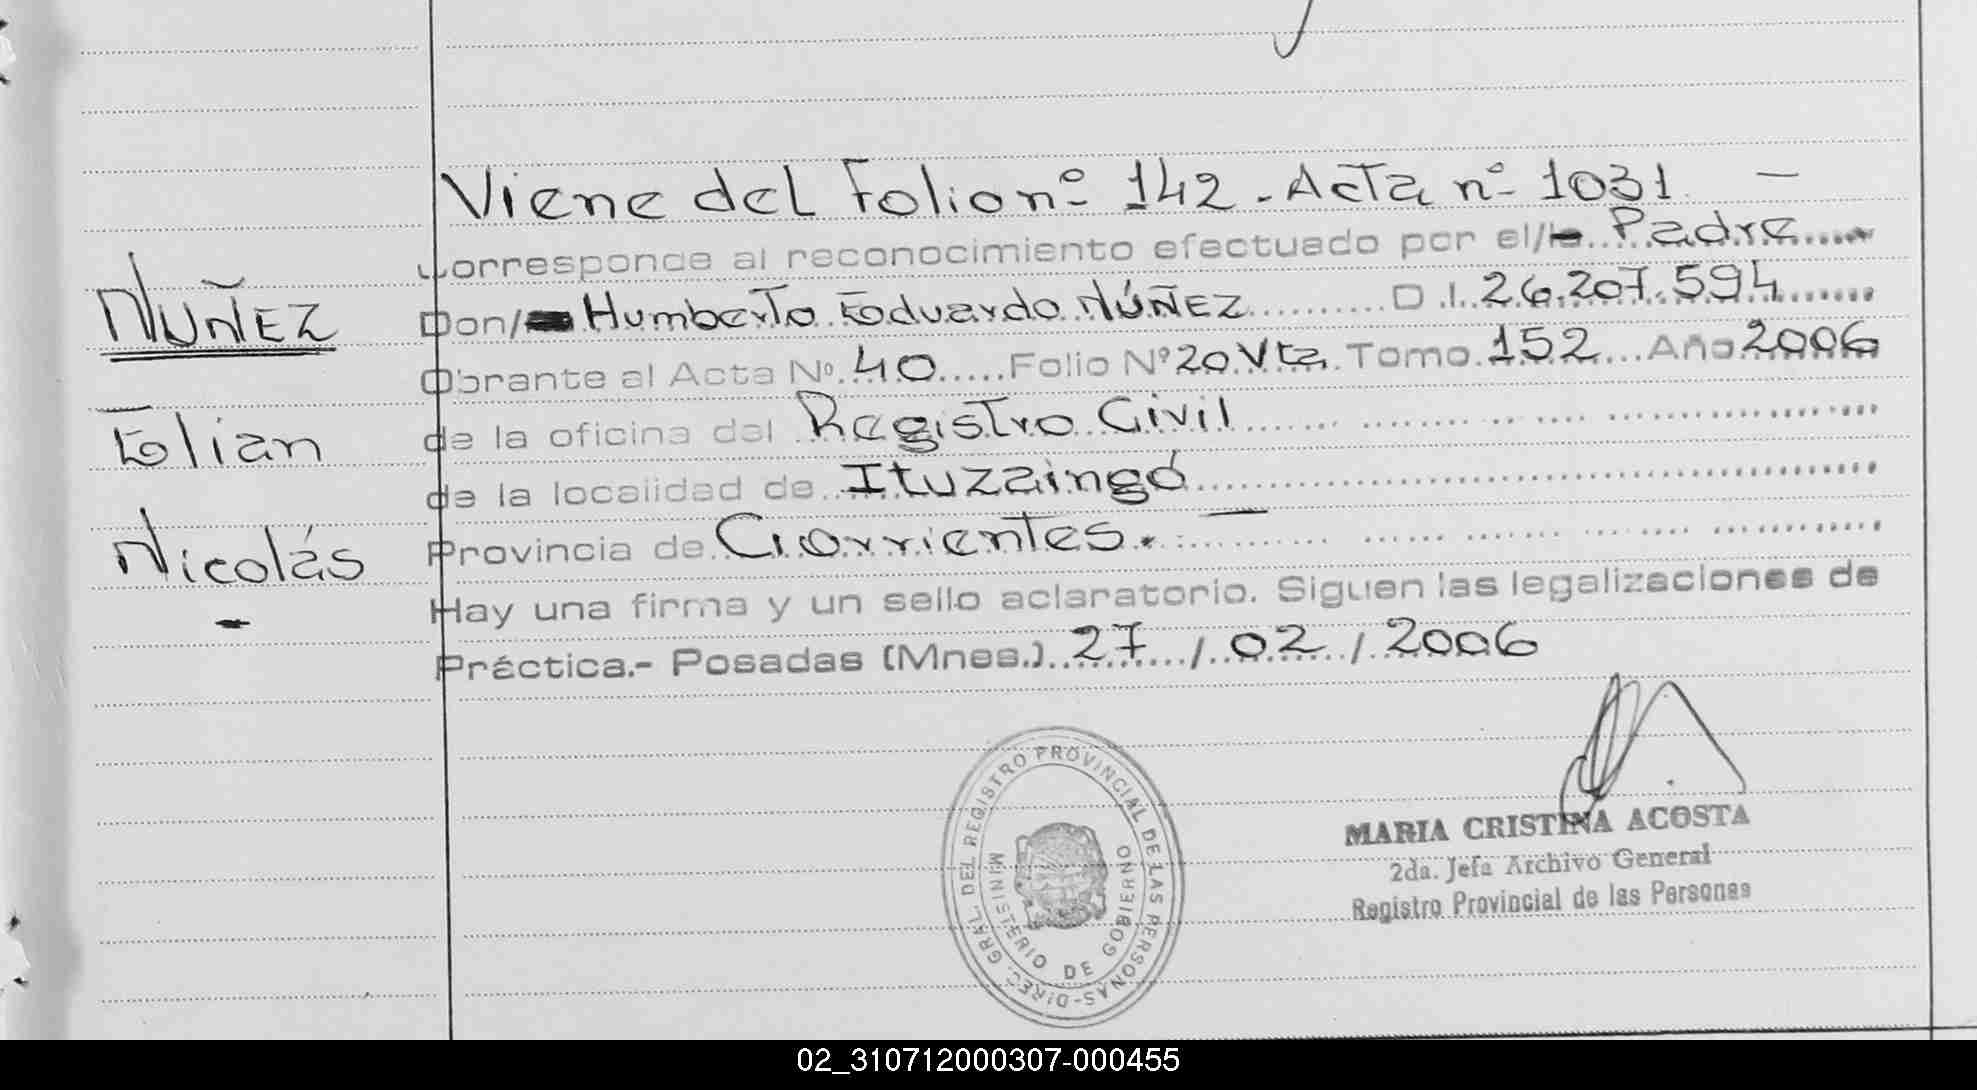 Viene del Folio nº 142 - Acta nº 1031 —
Corresponde al reconocimiento efectuado por el/la Padre
Don/ Humberto Eduardo NÚÑEZ D.I. 26.207.594
Obrante al Acta Nº 40 Folio Nº 20 Vta Tomo 152 Año 2006
de la oficina del Registro Civil
de la localidad de Ituzaingó
Provincia de Corrientes. —
Hay una firma y un sello aclaratorio. Siguen las legalizaciones de
Práctica.- Posadas (Mnes.) 27 / 02 / 2006
NUÑEZ
Eolian
Nicolás
-
DIREC. GRAL. DEL REGISTRO PROVINCIAL DE LAS PERSONAS-
MINISTERIO DE GOBIERNO
MARIA CRISTINA ACOSTA
2da. Jefa Archivo General
Registro Provincial de las Personas
02_310712000307-000455